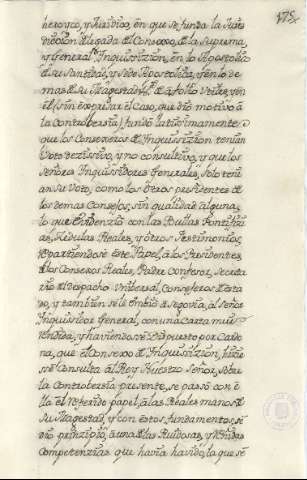 175.
heroyco, y Juridico, en que se funda la Juris
dicion delegada del Consexo, de la Suprema,
y General Inquisizion, en lo Apostolico
de su Santidad, y Sede Apostolica, y en lo de
mas de su Magestad,
el (sin expresar el Caso, que dio motivo à
la Controbersia) fundò latissimamente
que los Consexeros de Inquisizion tenian
Voto dezissivo, y no consultivo, y que los
Señores Inquisidores Generales, solo teni
an su Voto, como los otros presidentes de
los demas Consejos, sin qualidad alguna,
lo que evidenziò con las Bullas Pontifizi
as, Zedulas Reales, y otros Testimonios,
repartiendose este Papel, à los Presidentes
de los Consexos Reales, Padre Confesor, Secreta
rio del Despacho Universal, Consejeros de Esta
do, y tambien se le embiò à Segovia, al Señor
Inquisidor General, con una Carta muy
rendida, y haviendose Dispuesto por Carde
na, que el Consexo de Inquisizion, hizie
sse Consulta al Rey Nuestro Señor, sobre
la Controbersia presente, se passò con e
lla el referido papel, à las Reales manos de
su Magestad, y con estos fundamentos, se
diò prinzipio, à una de las Ruidosas, y reñidas
Competenzias que havia havido, lo que se